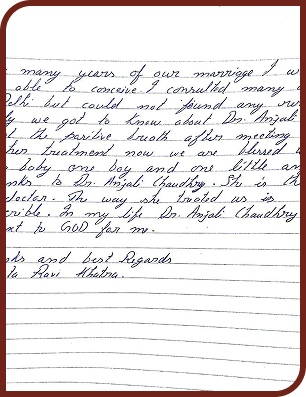 many years of our marriage I w
able to conceive. I consulted many
elhi but could not found any
ly we got to know about Dr. Anjali
t the positive breath after meeting
her treatment now we are blessed
baby one boy and one little an
nks to Dr. Anjali Chaudhry. She is th
doctor. The way she treated us is
crible. In my life Dr. Anjali Chaudhry
xt to GOD for me.
nks and best Regards
ta Ravi Khatna.